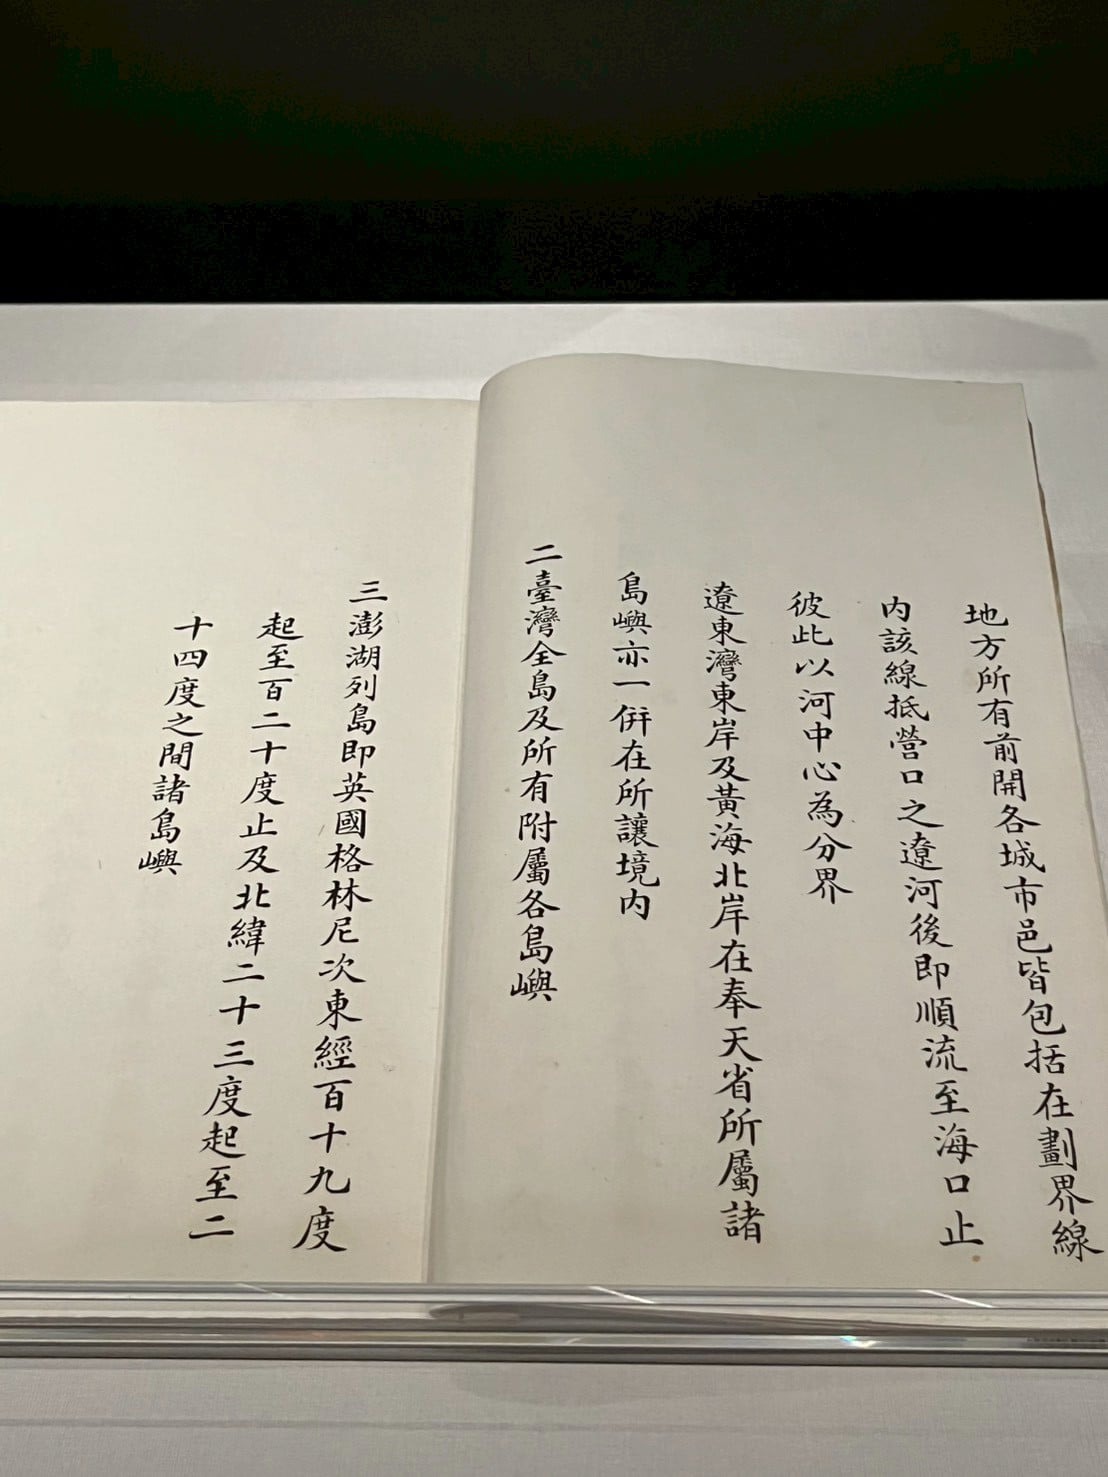 地方所有前開各城市邑皆包括在劃界線
內該線抵營口之遼河後即順流至海口止
彼此以河中心為分界
遼東灣東岸及黃海北岸在奉天省所屬諸
島嶼亦一併在所讓境內
二臺灣全島及所有附屬各島嶼
三澎湖列島即英國格林尼次東經百十九度
起至百二十度止及北緯二十三度起至二
十四度之間諸島嶼